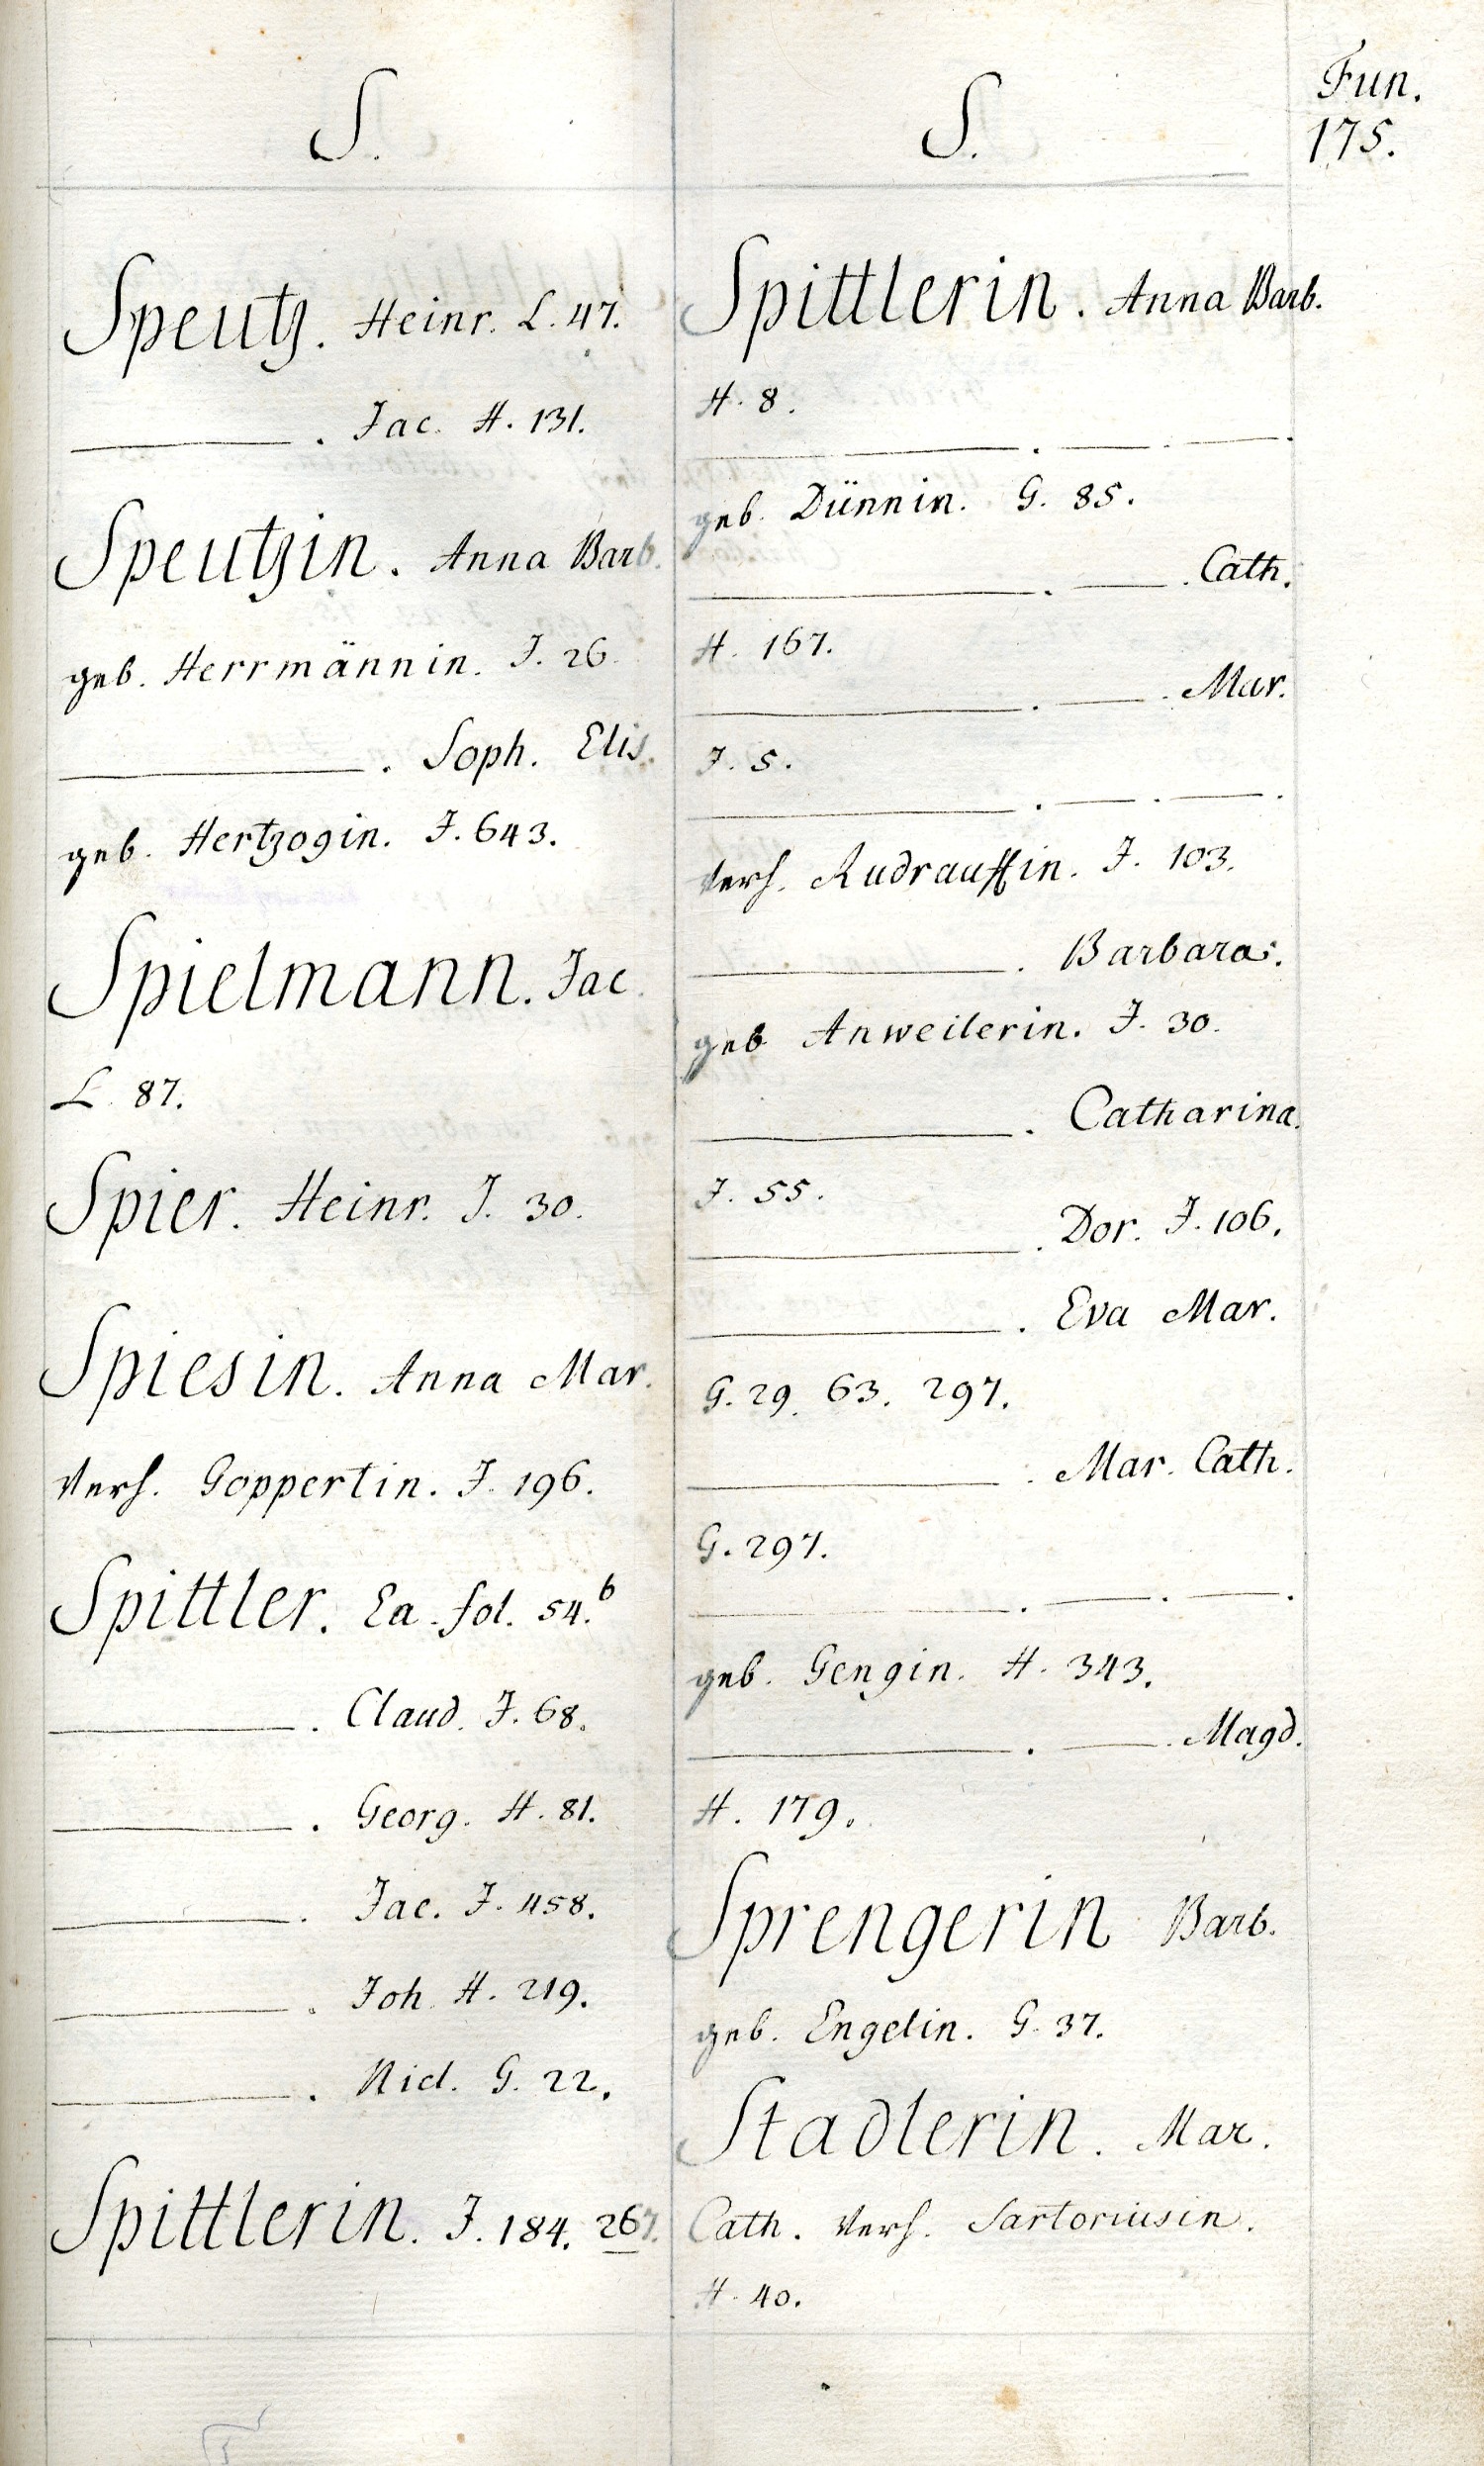 S.
Speutz. Heinr. L. 47.
———. Jac. H. 131.
Speutzin. Anna Barb.
geb. Herrmännin. J. 26.
———. Soph. Elis.
geb. Hertzogin. J. 643.
Spielmann. Jac.
L. 87.
Spier. Heinr. J. 30.
Spiesin. Anna Mar.
Verh. Goppertin. J. 196.
Spittler. Ea. fol. 54.b
———. Claud. J. 68.
———. Georg. H. 81.
———. Jac. J. 458.
———. Joh. H. 219.
———. Nicl. G. 22.
Spittlerin. J. 184. 267.
S.
Spittlerin. Anna Barb.
H. 8.
———. ———. ———.
geb. Dünnin. G. 85.
———. ———. Cath.
H. 167.
———. ———. Mar.
J. 5.
———. ———. ———.
Verh. Rudrauffin. J. 103.
———. Barbara.
geb. Anweilerin. J. 30.
———. Catharina.
J. 55.
———. Dor. J. 106.
———. Eva Mar.
G. 29. 63. 297.
———. Mar. Cath.
G. 297.
———. ———. ———.
geb. Gengin. H. 343.
———. ———. Magd.
H. 179.
Sprengerin Barb.
geb. Engelin. G. 37.
Stadlerin. Mar.
Cath. Verh. Sartoriusin.
H. 40.
Fun.
175.